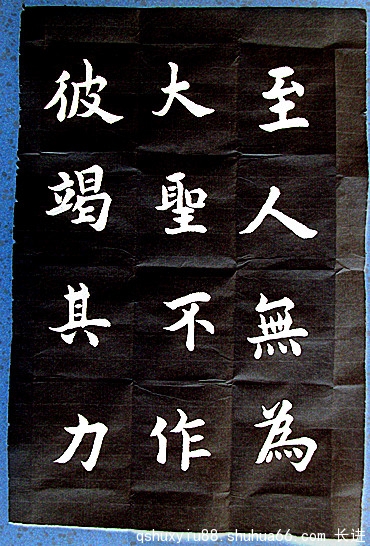 至人無為
大聖不作
彼竭其力
qshuxyiu88.shuhua66.com 长进